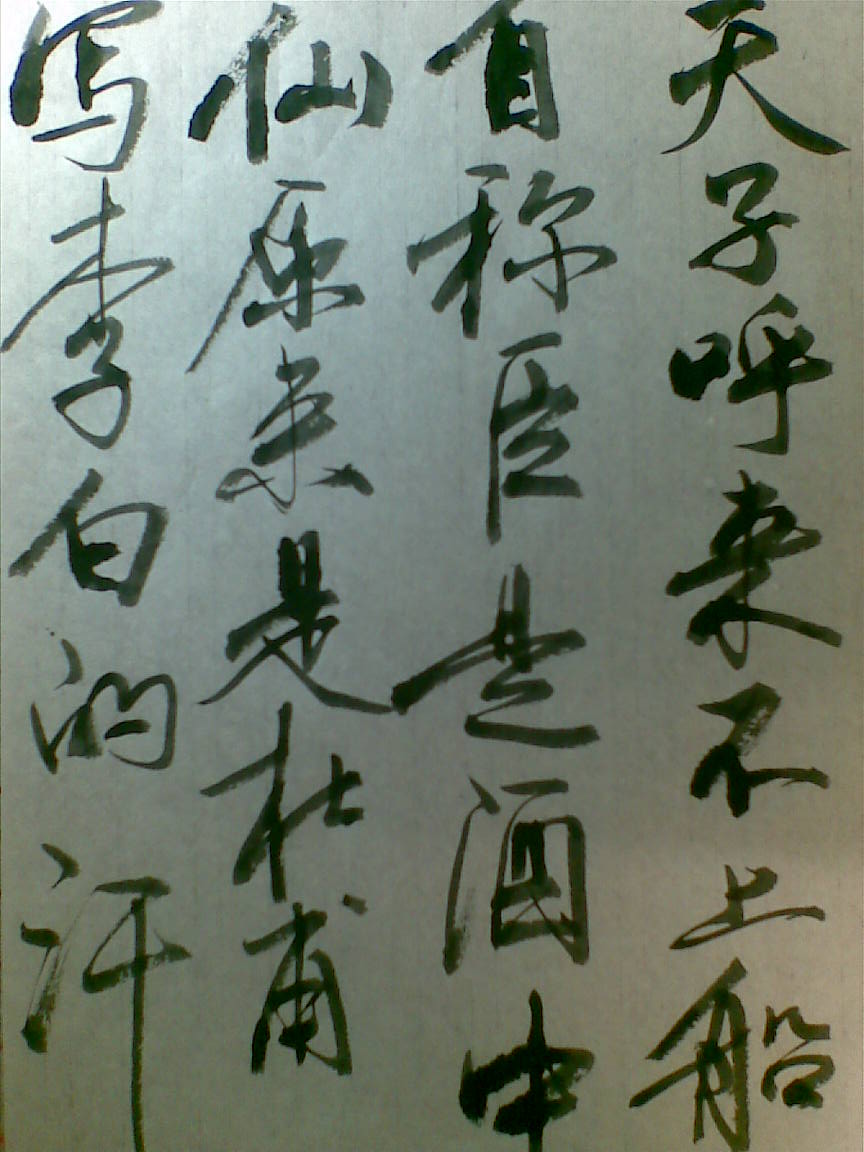 天子呼来不上船
自称臣是酒中
仙原来是杜甫
写李白的汗